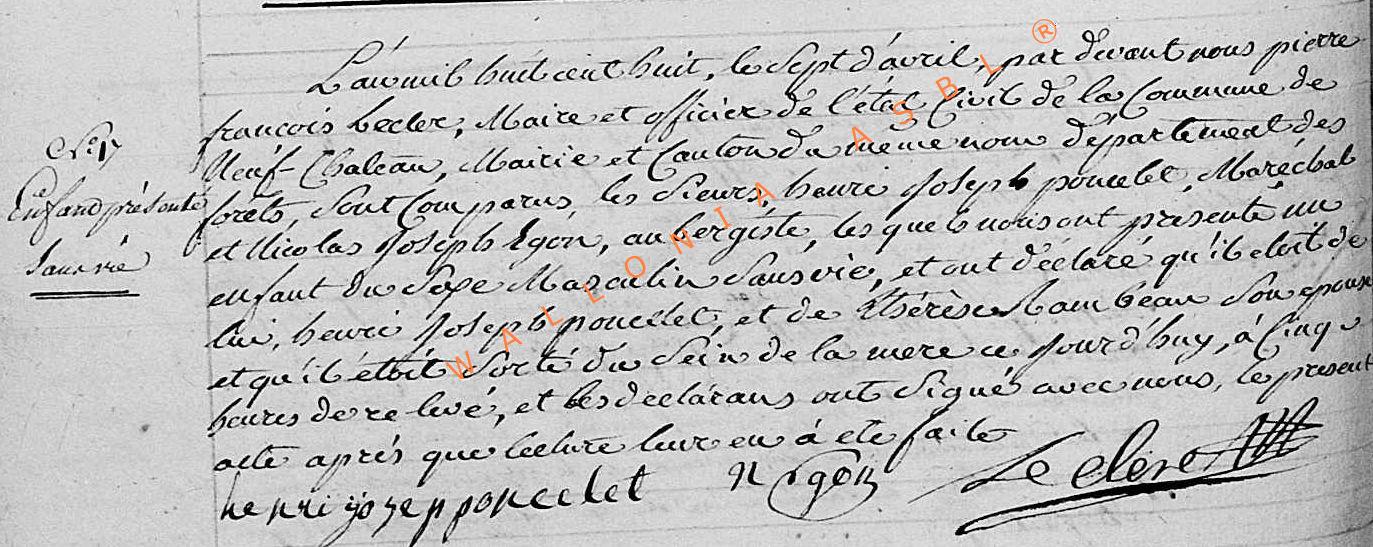 L'an mil huit cent huit, le Sept d'avril, par devant nous pierre
françois Lecler, Maire et officier de l'état Civil de la Commune de
Neuf-Chateau, Mairie et Canton du même nom département des
forêts, sont Comparus, les Sieurs, henri Joseph poncelet, Maréchal
et Nicolas Joseph Egon, aubergiste, les quels nous ont presenté un
enfant du Sexe Masculin Sans vie, et ont déclaré qu'il etoit de
lui, henri Joseph poncelet, et de Thérèse Lambeau Son epouse
et qu'il étoit Sorti du Sein de la mere ce jourd'huy, à Cinq
heures de relevé, et les declarans ont Signé avec nous, le present
acte après que lecture leur en à ete faite
henri jozep poncelet
N Egon
Le clere
Enfand présenté
Sans vie
WALLONIA ASBL ®